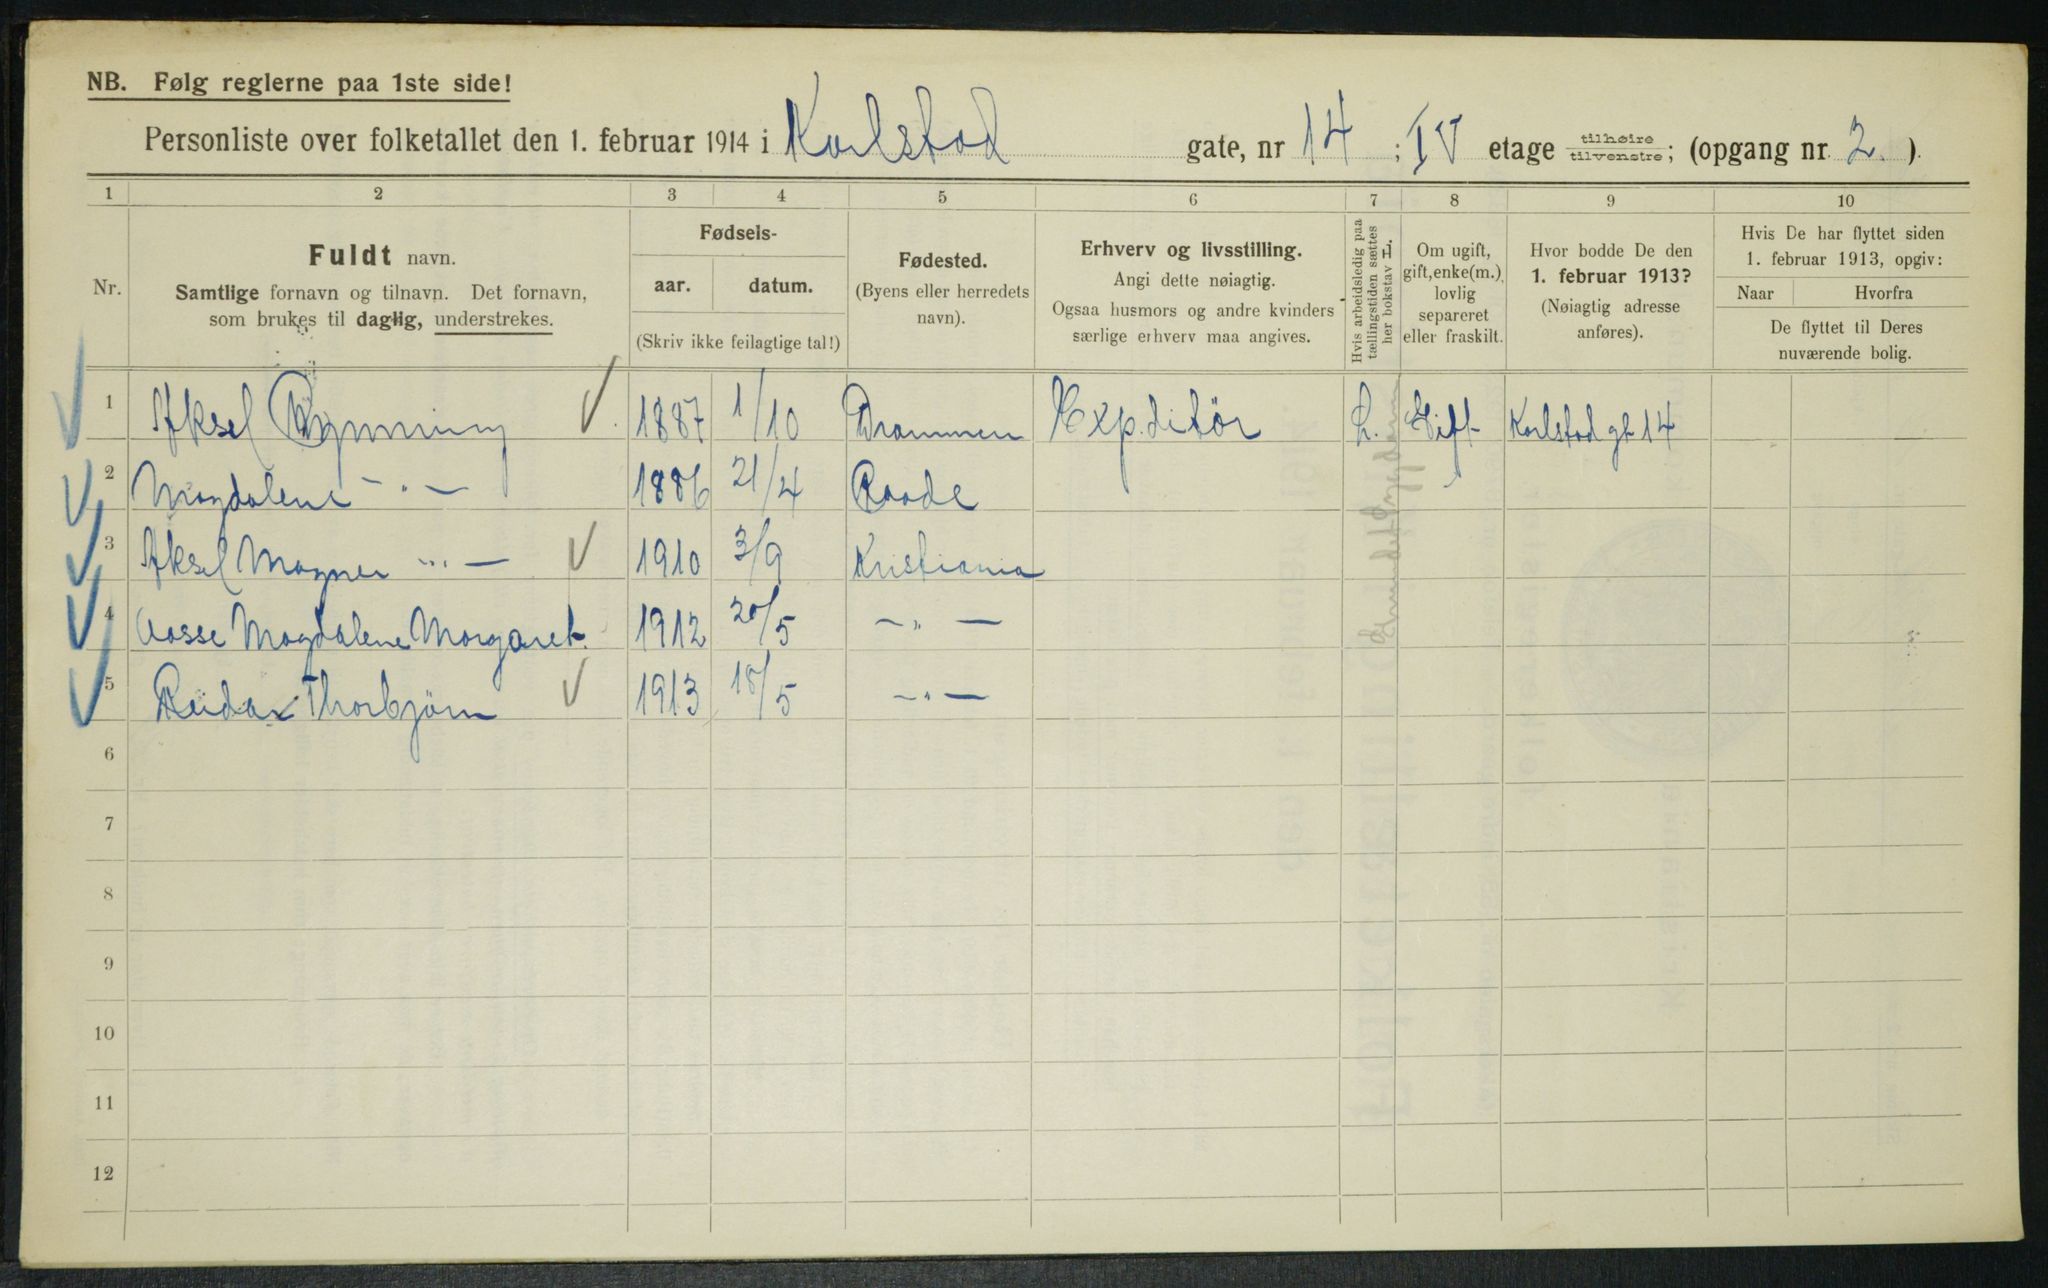 NB. Følg reglerne paa 1ste side!
Personliste over folketallet den 1. februar 1914 i Karlstad gate, nr 14 ; IV etage tilhøire tilvenstre ; (opgang nr. 2. ).
1 2 3 4 5 6 7 8 9 10
Nr.
Fuldt navn.
Samtlige fornavn og tilnavn. Det fornavn,
som brukes til daglig, understrekes.
Fødsels-
aar. datum.
(Skriv ikke feilagtige tal!)
Fødested.
(Byens eller herredets
navn).
Erhverv og livsstilling.
Angi dette nøiagtig.
Ogsaa husmors og andre kvinders
særlige erhverv maa angives.
Hvis arbeidsledig paa
tællingstiden sættes
her bokstav L.
Om ugift,
gift, enke(m.),
lovlig
separeret
eller fraskilt.
Hvor bodde De den
1. februar 1913?
(Nøiagtig adresse
anføres).
Hvis De har flyttet siden
1. februar 1913, opgiv:
Naar Hvorfra
De flyttet til Deres
nuværende bolig.
1 Aksel Rynning 1887 1/10 Drammen Expditör L. Gift Karlstad gt 14
2 Magdalene - " - 1886 21/4 Raade
3 Aksel Magner - " - 1910 3/9 Kristiania
4 Aasse Magdalene Margaret. 1912 20/5 - " -
5 Reidar Thorbjörn 1913 18/5 - " -
6
7
8
9
10
11
12